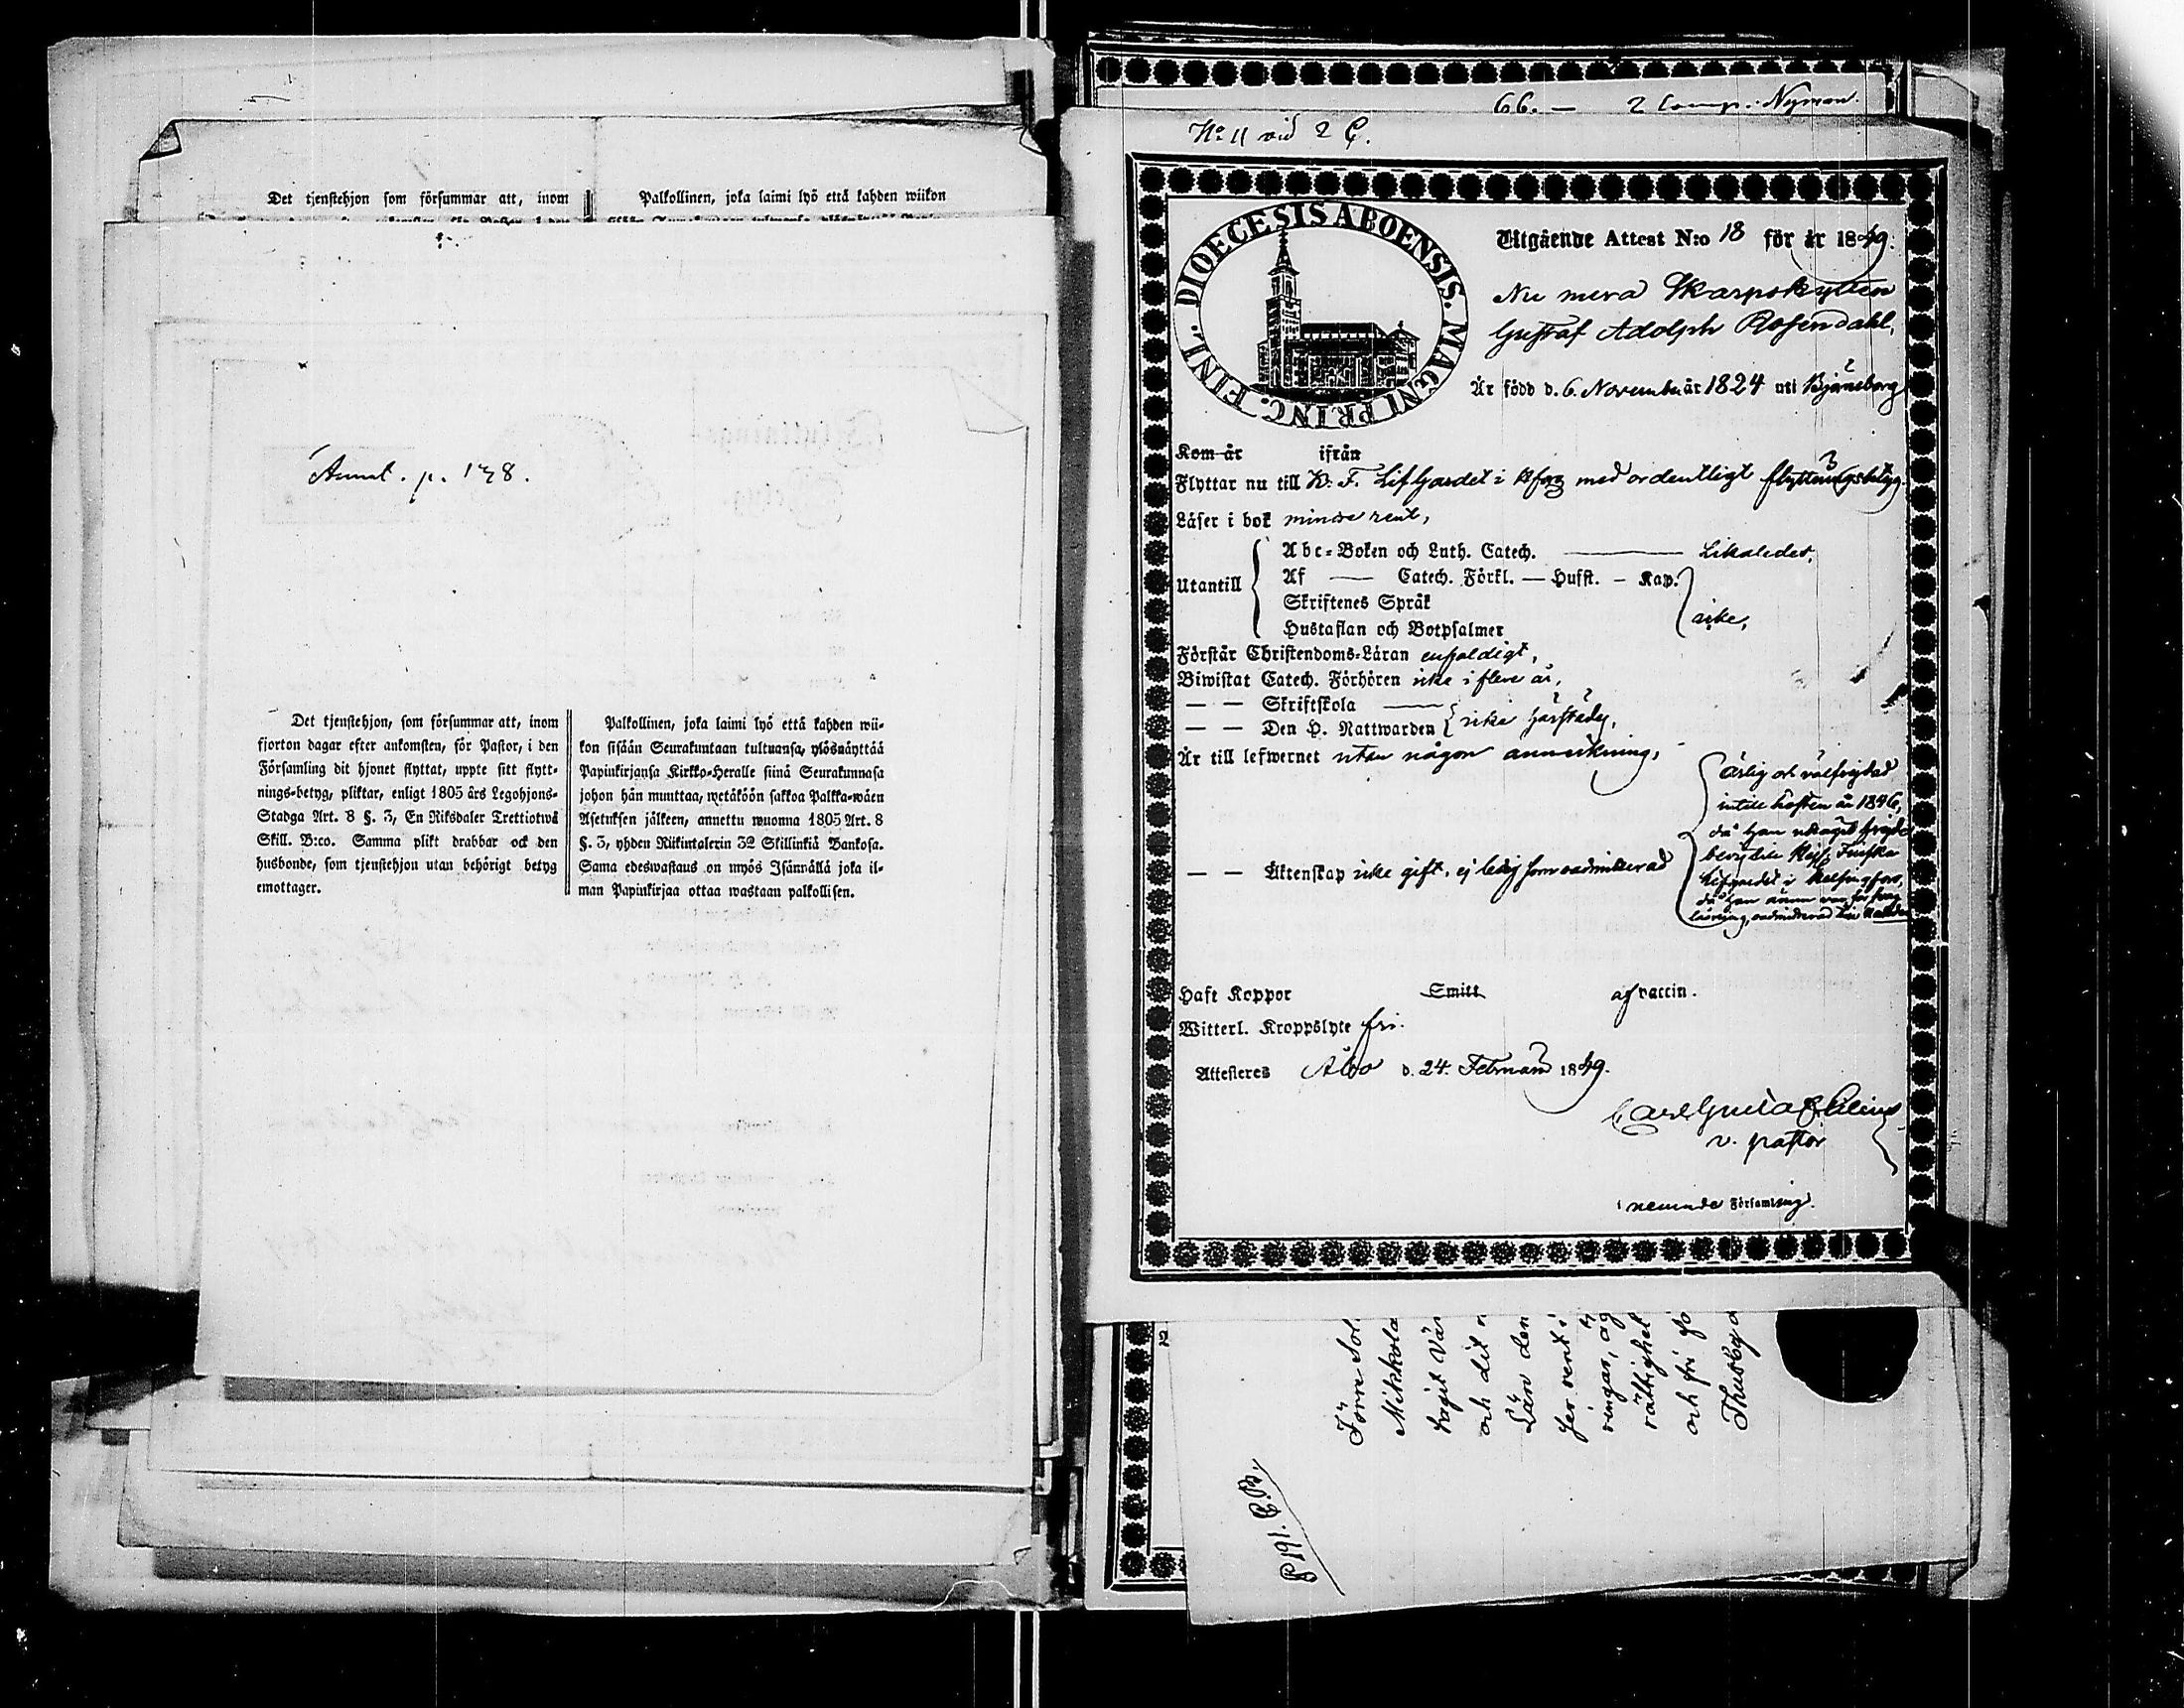 Det tjenstehjon som försummar att, inom
Palkollinen, joka laimi lyö että kahden wiikon
Anmt. p. 138.
Det tjenstehjon, som försummar att, inom
fjorton dagar efter ankomsten, för Pastor, i den
Församling dit hjonet flyttat, uppte sitt flytt-
nings-betyg, pliktar, enligt 1805 års Legohjons-
Stadga Art. 8 §. 3, En Riksdaler Trettiotwå
Skill. B:co. Samma plikt drabbar ock den
husbonde, som tjenstehjon utan behörigt betyg
emottager.
Palkollinen, joka laimi lyö että kahden wii-
kon sisään Seurakuntaan tultuansa, ylösnäyttää
Papinkirjansa Kirkko-Heralle siinä Seurakunnasa
johon hän muuttaa, wetäköön sakkoa Palkka-wäen
Asetuksen jälkeen, annettu wuonna 1805 Art. 8
§. 3, yhden Riikintalerin 32 Skillinkiä Bankosa.
Sama edeswastaus on myös Isännällä joka il-
man Papinkirjaa ottaa wastaan palkollisen.
66. — 2 Comp. Nyman.
No 11 vid 2 C.
DIOECESIS ABOENSIS. MAGNI PRINC. FINL.
Utgående Attest N:o 18 för år 1849.
Nu mera Skarpskytten
Gustaf Adolph Rosendahl,
Är född d. 6. November år 1824 uti Björneborg
Kom år ifrån
Flyttar nu till K. F. Lifgardet i med ordentligt flyttningsbetyg.
Läser i bok mindre rent,
Utantill
Abc-Boken och Luth. Catech. Likaledes,
Af — Catech. Förkl. — Husst. — Kap.
Skriftenes Språk
Hustaflan och Botpsalmer
icke,
Förstår Christendoms-Läran enfaldigt,
Biwistat Catech. Förhören icke i flere år,
— — Skriftskola
— — Den H. Nattwarden icke härstädes,
Är till lefwernet utan någon anmärkning,
— — Äktenskap icke gift, ej ledig som oadmitterad
ärlig och välfrejdad
intill hösten år 1846,
då han uttaget frejde
betyg till Kejs. Finska
Lifgardet i Helsingfors,
då han ännu var för svag
läsning, oadmitterad till Nattv.
Haft Koppor Smitt af vaccin.
Witterl. Kroppslyte fri.
Attesteres Åbo d. 24. Februarii 1849.
Carl Gustaf
v. pastor
nämnde Församling.
Mikkola
och dit
Län den
rättighet
och fri
Thusby
p 191. C.B.